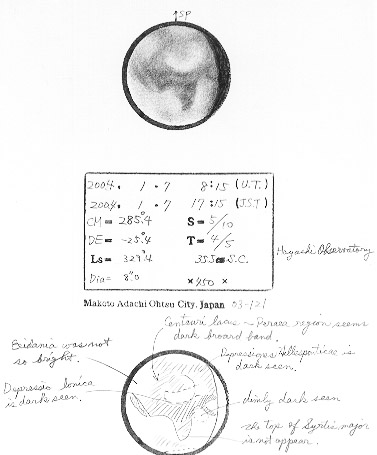 ↑SP
2004. 1. 7 8:15 (U.T.)
2004. 1. 7 17:15 (J.S.T)
CM= 285.°4 S= 5/10
DE= -25.°4 T= 4/5
Ls= 329.°4 355 S.C.
Dia= 8."0 ×450 ×
Hayashi Observatory
Makoto Adachi Ohtsu City, Japan 03-121
Centauri lacus – Peraea region seems
dark broard band.
Eridania was not
so bright.
Depressiones Hellesponticae is
dark seen.
Depressio Ionica
is dark seen.
dimly dark seen
the top of Syrtis major
is not appear.